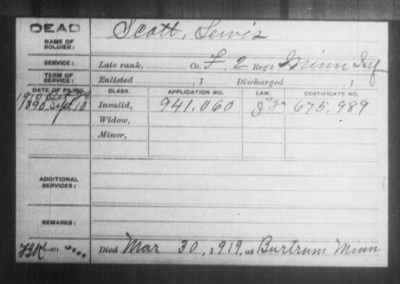 DEAD
NAME OF SOLDIER: Scott, Lewis
SERVICE: Late rank, Co. F, 2 Reg't Minn Inf
TERM OF SERVICE: Enlisted , 1 Discharged , 1
DATE OF FILING. CLASS. APPLICATION NO. LAW. CERTIFICATE NO.
1890 Sept 10 Invalid, 941.060 675.989
Widow,
Minor,
ADDITIONAL SERVICES:
REMARKS:
Died Mar 30, 1919, at Burtrum Minn